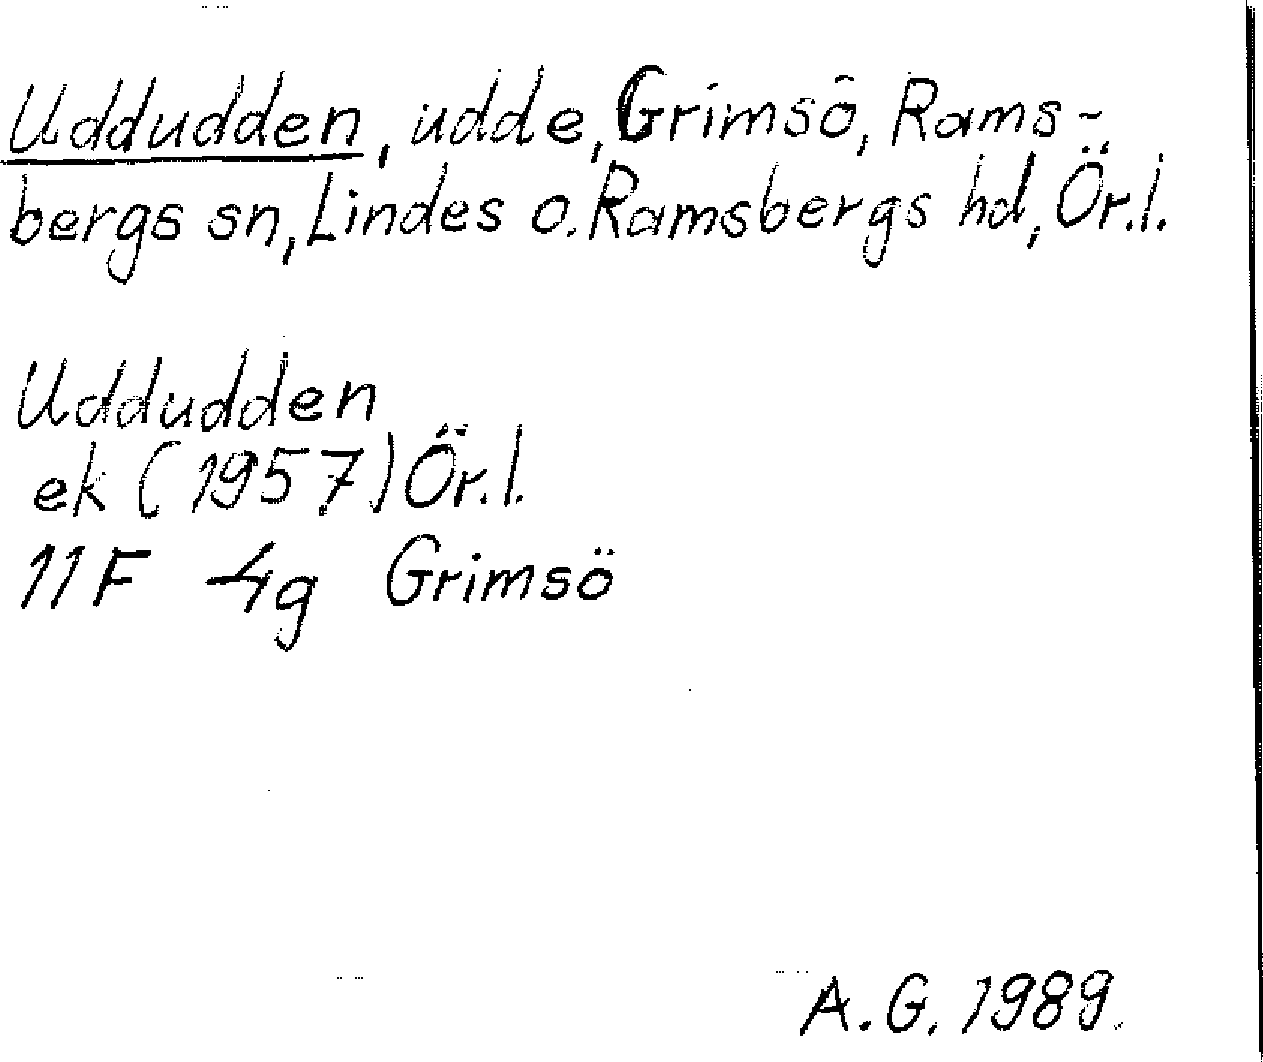 Uddudden, udde, Grimsö, Rams-
bergs sn, Lindes o. Ramsbergs hd, Ör.l.
Uddudden
ek (1957) Ör.l.
11F 4g Grimsö
A.G. 1989.